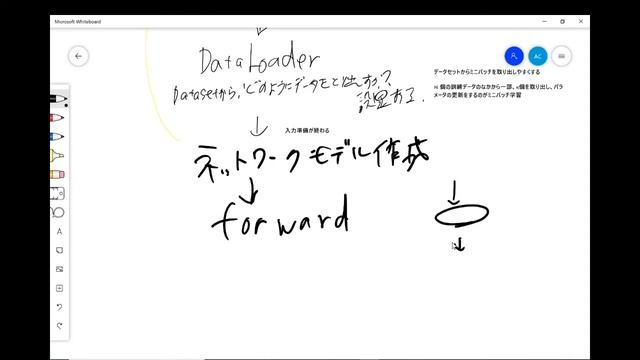 Microsoft Whiteboard
AC
DataLoader
Datasetから、どのようにデータをとり出すか？
設置する.
データセットからミニバッチを取り出しやすくする
個の訓練データのなかから一部、n個を取り出し、パラ
メータの更新をするのがミニバッチ学習
入力準備が終わる
ネットワークモデル作成
forward
A